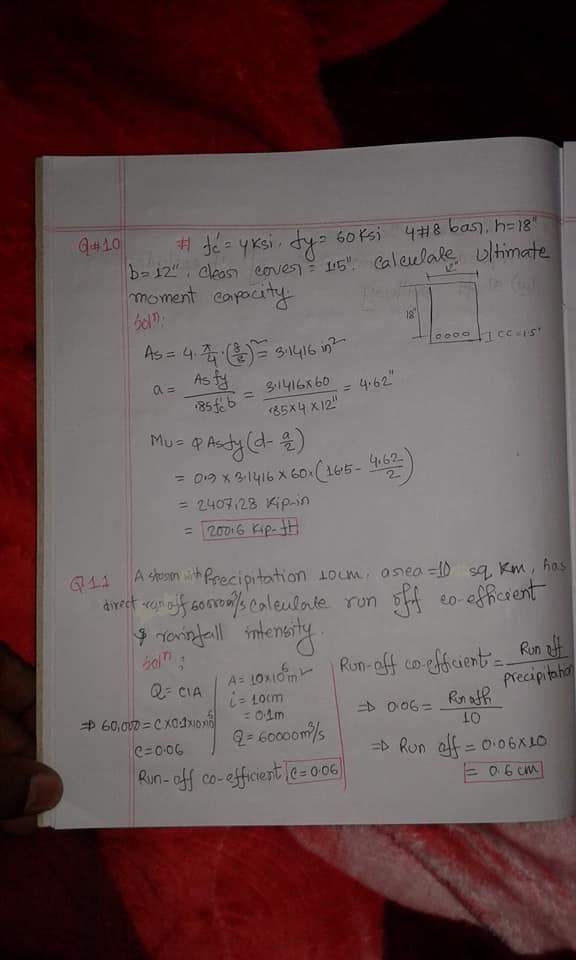 Q#10 # fc' = 4 Ksi. fy = 60 Ksi 4#8 bar, h=18"
b=12". Clear cover = 1.5". Calculate Ultimate
moment capacity.
soln:
12"
18"
CC=1.5"
As = 4. π/4 . (8/8)² = 3.1416 in²
a = As fy / .85 fc' b = 3.1416×60 / .85×4×12" = 4.62"
Mu = φ As fy (d - a/2)
= 0.9 × 3.1416 × 60 × (16.5 - 4.62/2)
= 2407.28 Kip-in
= 200.6 Kip-ft
Q.11 A storm with Precipitation 10cm, area=10 sq Km, has
direct run off 60000m³/s Calculate run off co-efficient
& rainfall intensity.
soln:
Q = CIA
⇒ 60,000 = C×0.1×10×10⁶
C = 0.06
A = 10×10⁶ m²
i = 10cm
= 0.1m
Q = 60000m³/s
Run-off co-efficient C=0.06
Run-off co-efficient = Run off / precipitation
⇒ 0.06 = Run off / 10
⇒ Run off = 0.06×10
= 0.6 cm